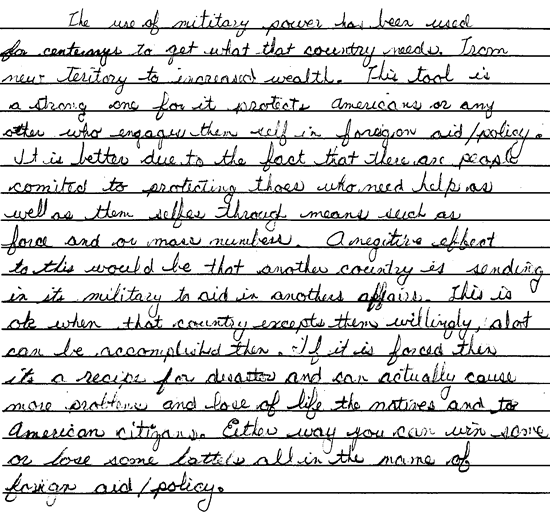 The use of mititary power has been used
for centurays to get what that country needs. From
new teritory to increased wealth. This tool is
a strong one for it protects Americans or any
other who engages them self in foregon aid/policy.
It is better due to the fact that there are people
comited to protecting thoes who need help as
well as them selfes through means such as
force and or mass numbers. A negitive effect
to this would be that another country is sending
in its military to aid in anothers affairs. This is
ok when that country excepts them willingly, alot
can be accomplished then. If it is forced then
its a recipe for desaster and can actually cause
more problems and lose of life the natives and to
American citizans. Either way you can win some
or lose some battels all in the name of
foreign aid/policy.